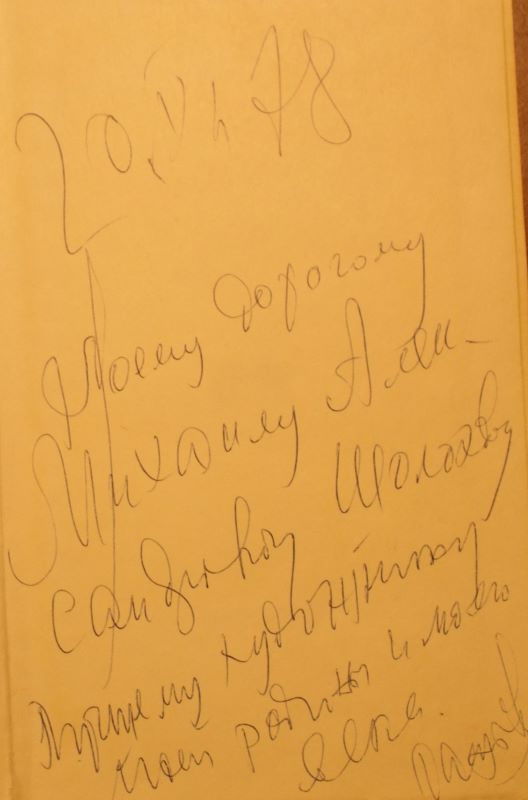 20.VI 78
Моему дорогому
Михаилу Алек-
сандровичу Шолохову
Лучшему художнику
моей родины и моего
века.